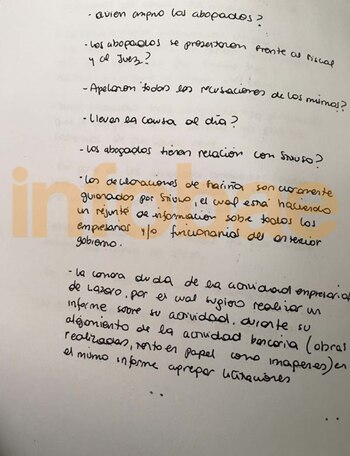 - Quien empujo los abogados?
- Los abogados se presentaron frente al fiscal
y al Juez?
- Apelaron todas las recusaciones de los mismos?
- Llevan la causa al día?
- Los abogados tienen relación con Stiuso?
- Las declaraciones de Fariña son claramente
guionados por Stiuso, el cual está haciendo
un rejunte de información sobre todos los
empresarios y/o funcionarios del anterior
gobierno.
infobae
- La
duda de la actividad empresarial
de Lazaro, por el cual sugiero realizar un
informe sobre su actividad, durante su
alejamiento de la actividad bancaria (obras
realizadas, tanto en papel como imagenes) en
el mismo informe agregar licitaciones